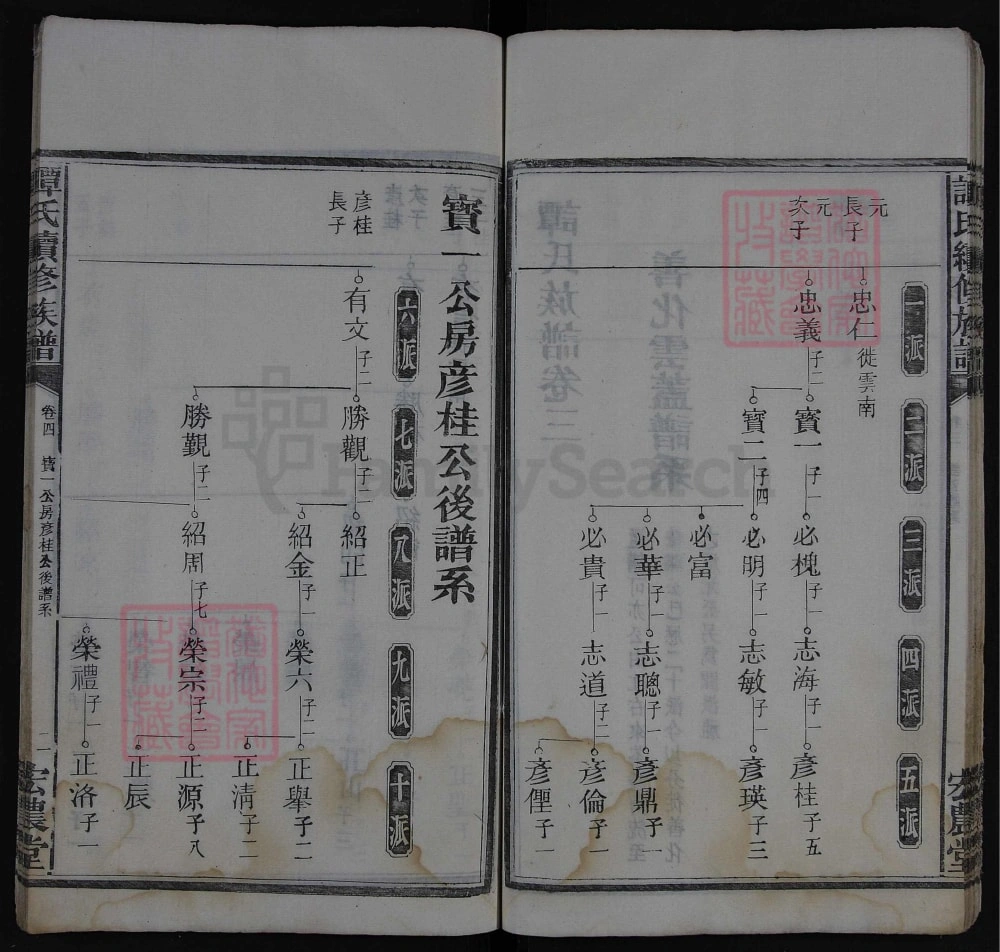 譚氏續修族譜
宏農堂
一派
二派
三派
四派
五派
元長子
忠仁徙雲南
元次子
忠義子二
寳一子一
必槐子一
志海子一
彥桂子五
寳二子四
必明子一
志敏子一
彥瑛子三
必富
必華子一
志聰子一
彥鼎子一
必貴子一
志道子二
彥倫子一
彥俚子一
寳一公房彥桂公後譜系
六派
七派
八派
九派
十派
彥桂長子
有文子二
勝觀子二
紹正
紹金子一
榮六子二
正舉子二
正清子二
勝觐子一
紹周子七
榮宗子二
正源子八
正辰
榮禮子一
正洛子一
譚氏續修族譜
卷四
寳一公房彥桂公後譜系
宏農堂
FamilySearch